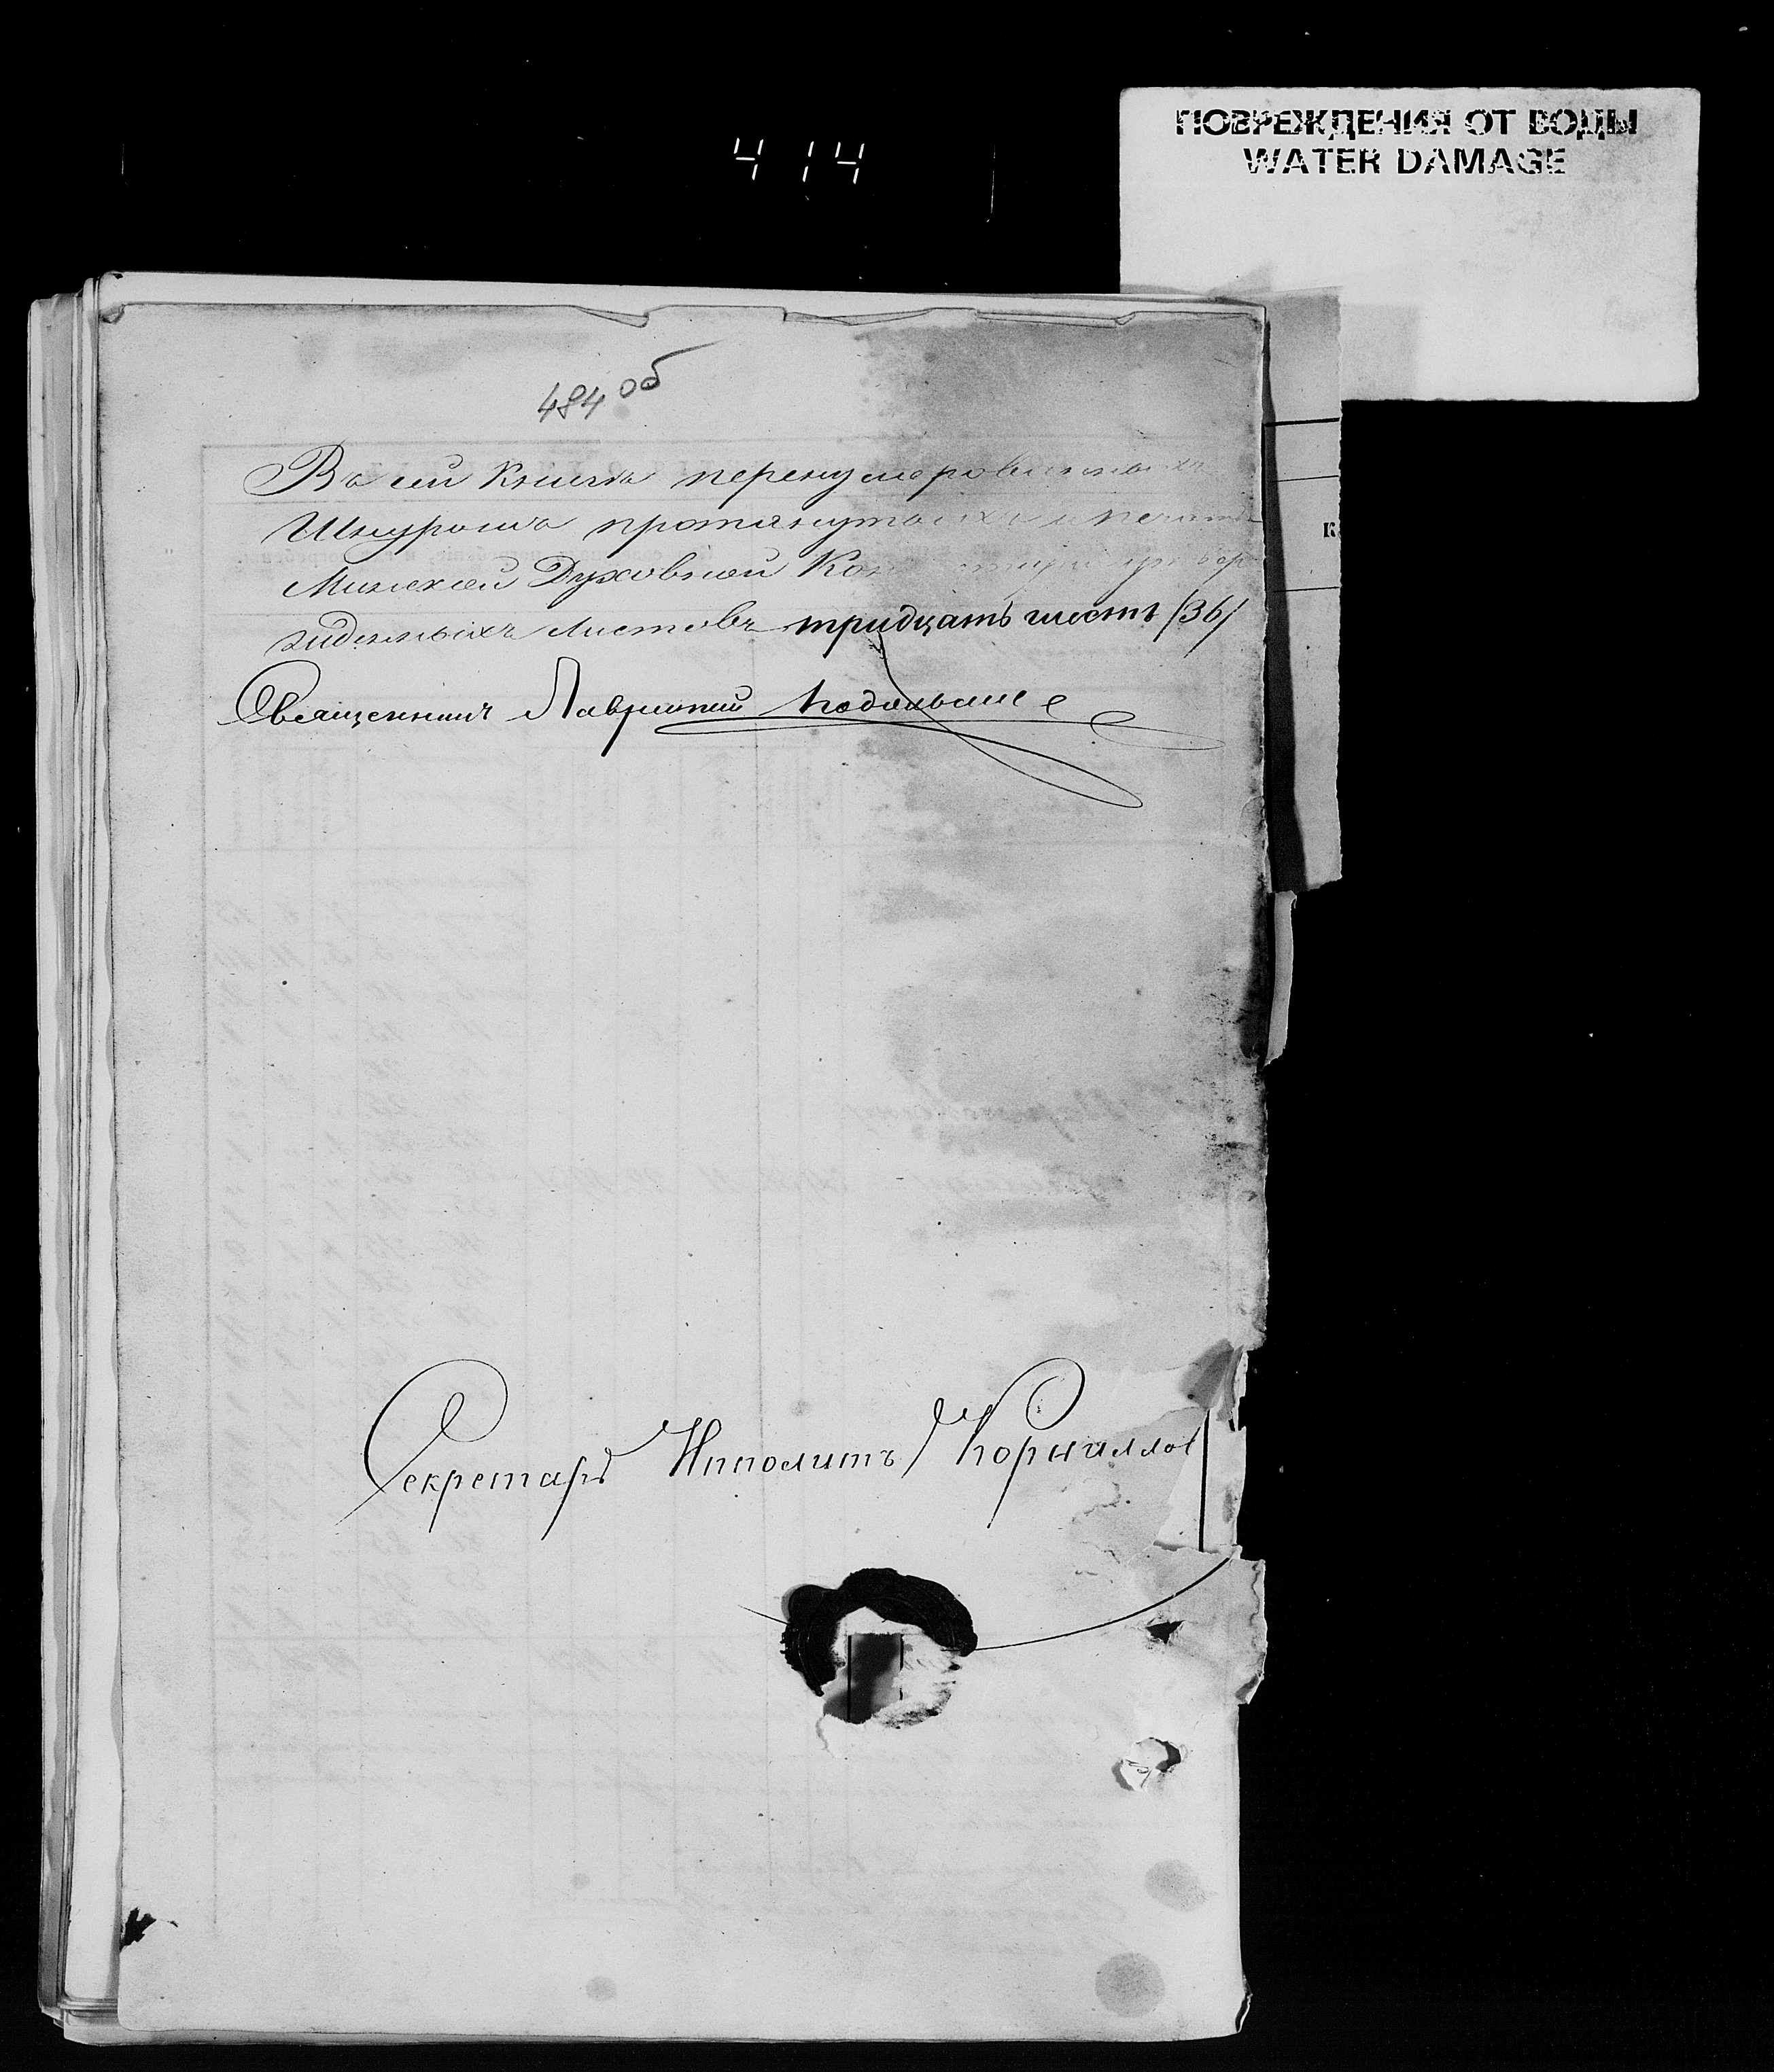 ПОВРЕЖДЕНИЯ ОТ ВОДЫ
WATER DAMAGE
414
484 об
К
Въ сей Книгѣ перенумерованныхъ
Шнуромъ протянутыхъ и печатью
Минской Духовной
тридцать шесть /36/ листовъ
Священникъ Лаврентий
Секретарь Ипполитъ Корнилло